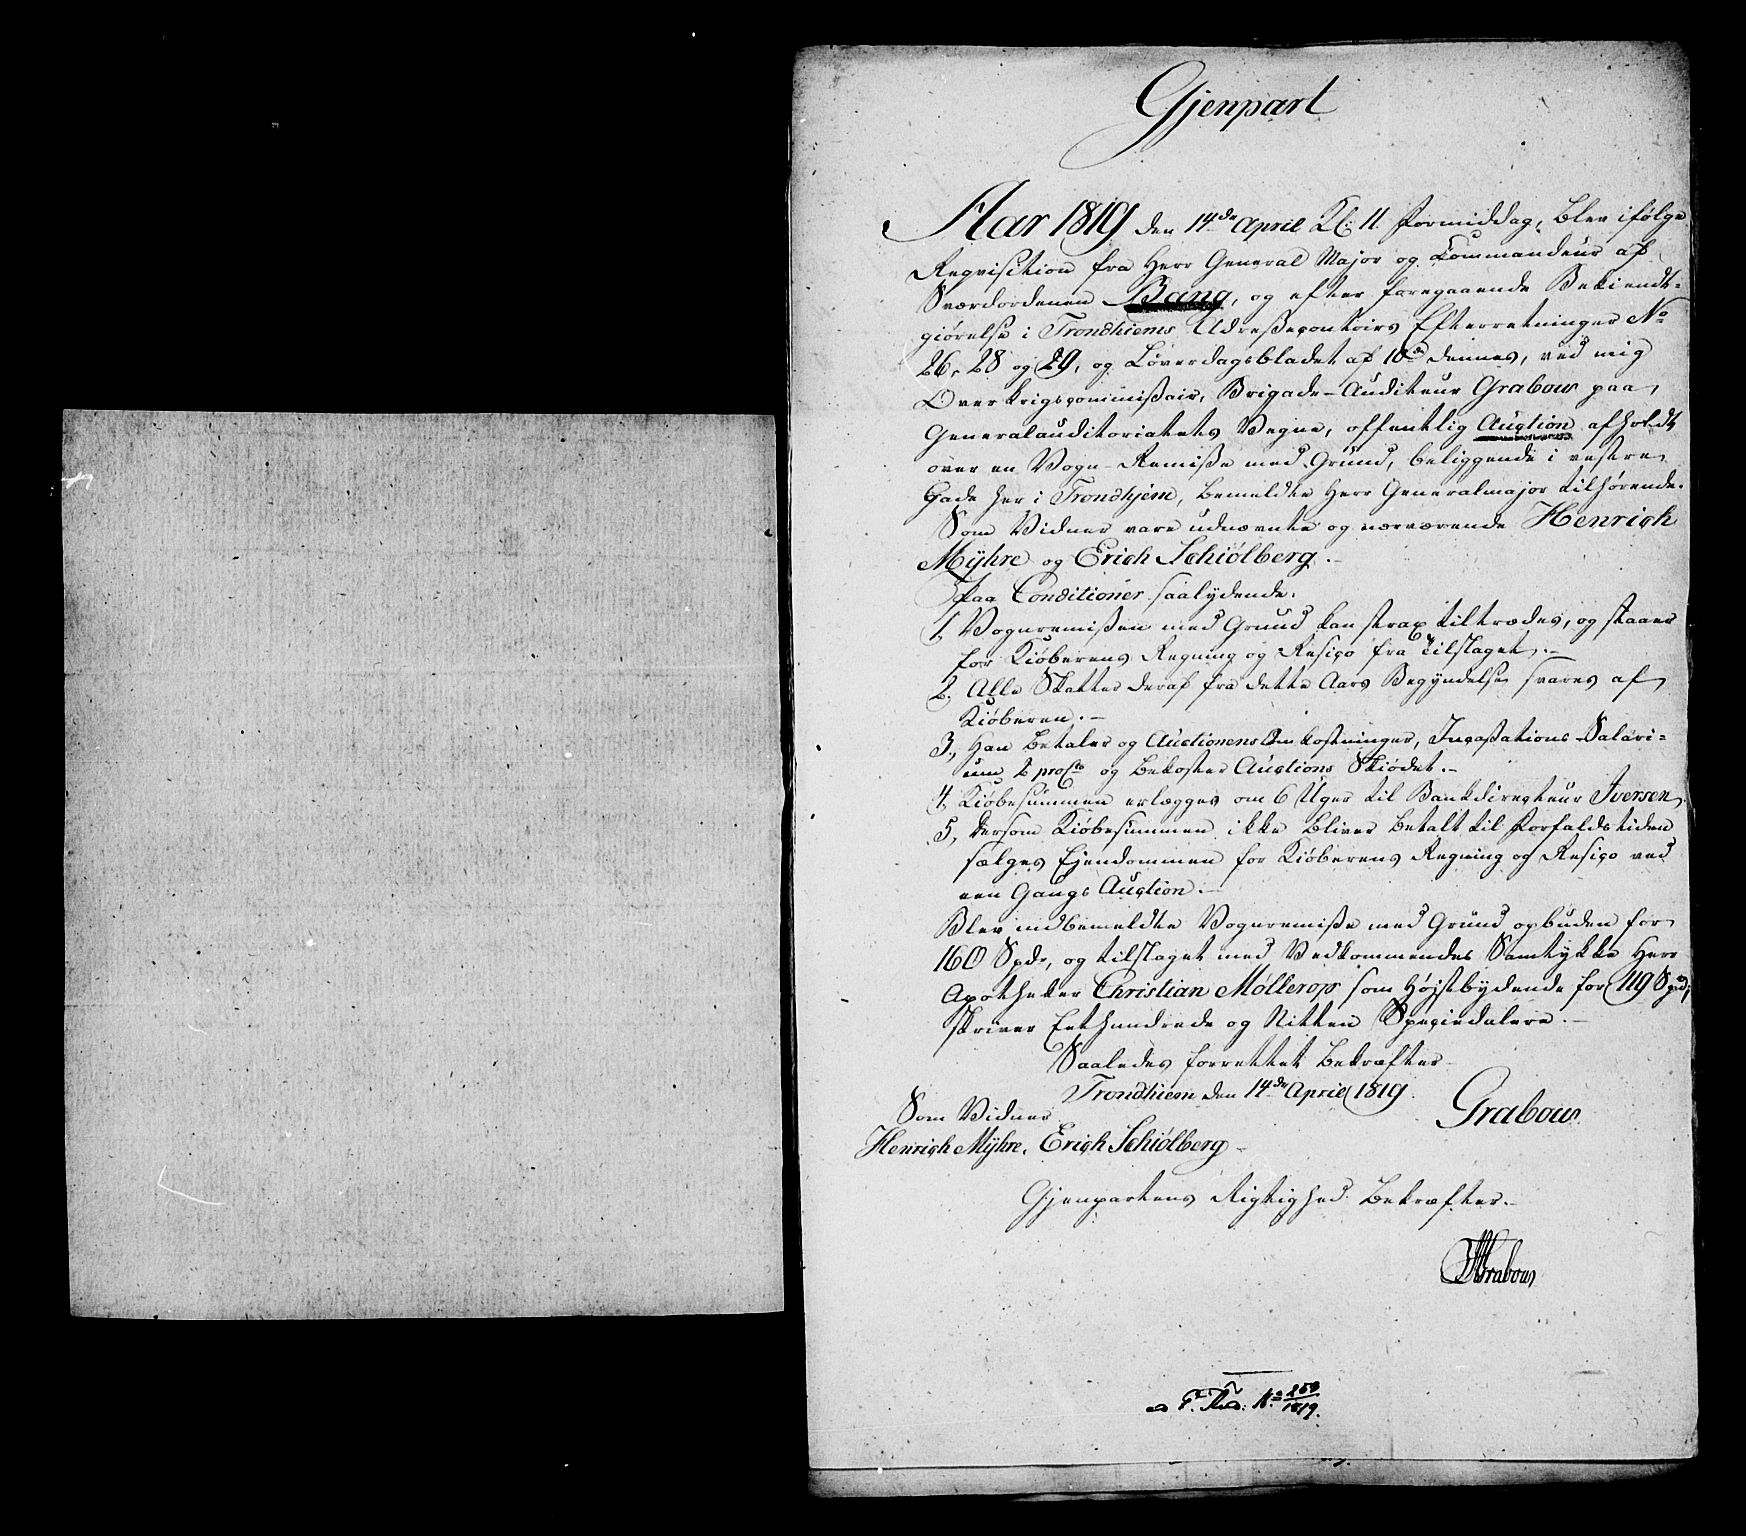 Gjenpart
Aar 1819 den 14de April Kl: 11 Formiddag, blev ifølge
Reqvisition fra Herr General Major og Commandeur af
Sværdordenen Bang, og efter foregaaende Bekiendt-
giørelse i Trondhiems Adresseçontoirs Efterretninger No
26, 28 og 29, og Løverdagsbladet af 10de dennes, ved mig
Overkrigsçommissair, Brigade-Auditeur Grabow paa
Generalauditoriatets Vegne, offentlig Auction afholdt
over en Vogn-Remisse med Grund, beliggende i vestre
Gade her i Trondhjem, bemeldte Herr Generalmajor tilhørende.
Som Vidner vare udnævnte og nærværende Henrich
Mÿhre og Erich Schiølberg.-
Paa Conditioner saalydende:
1, Vognremissen med Grund kan strax tiltrædes, og staaer
for Kiøberens Regning og Resiço fra Tilslaget.-
2, Alle Skatter deraf fra dette Aars Begyndelse svares af
Kiøberen.-
3, Han betaler og Auctionens Omkostninger, Inçassations-Salari=
um 2 proCto og bekoster Auctions Skiødet.-
4, Kiøbesummen erlægges om 6 Uger til Bankdirecteur Iversen
5, Dersom Kiøbesummen ikke bliver betalt til Forfaldstiden
sælges Ejendommen for Kiøberens Regning og Resiço ved
een Gangs Auction.-
Blev indbemeldte Vognremisse med Grund opbuden for
160 Spd, og tilslaget med Vedkommendes Samtykke Herr
Apotheker Christian Møllerop som Højstbydende for 119 Spd;
skriver Eethundrede og Nitten Speciedalere.-
Saaledes forrettet bekræfter
Trondhiem den 14de April 1819.
Grabow
Som Vidner
Henrich Mÿhre. Erich Schiølberg-
Gjenpartens Rigtighed bekræfter.-
Grabow
N: 259/1819.